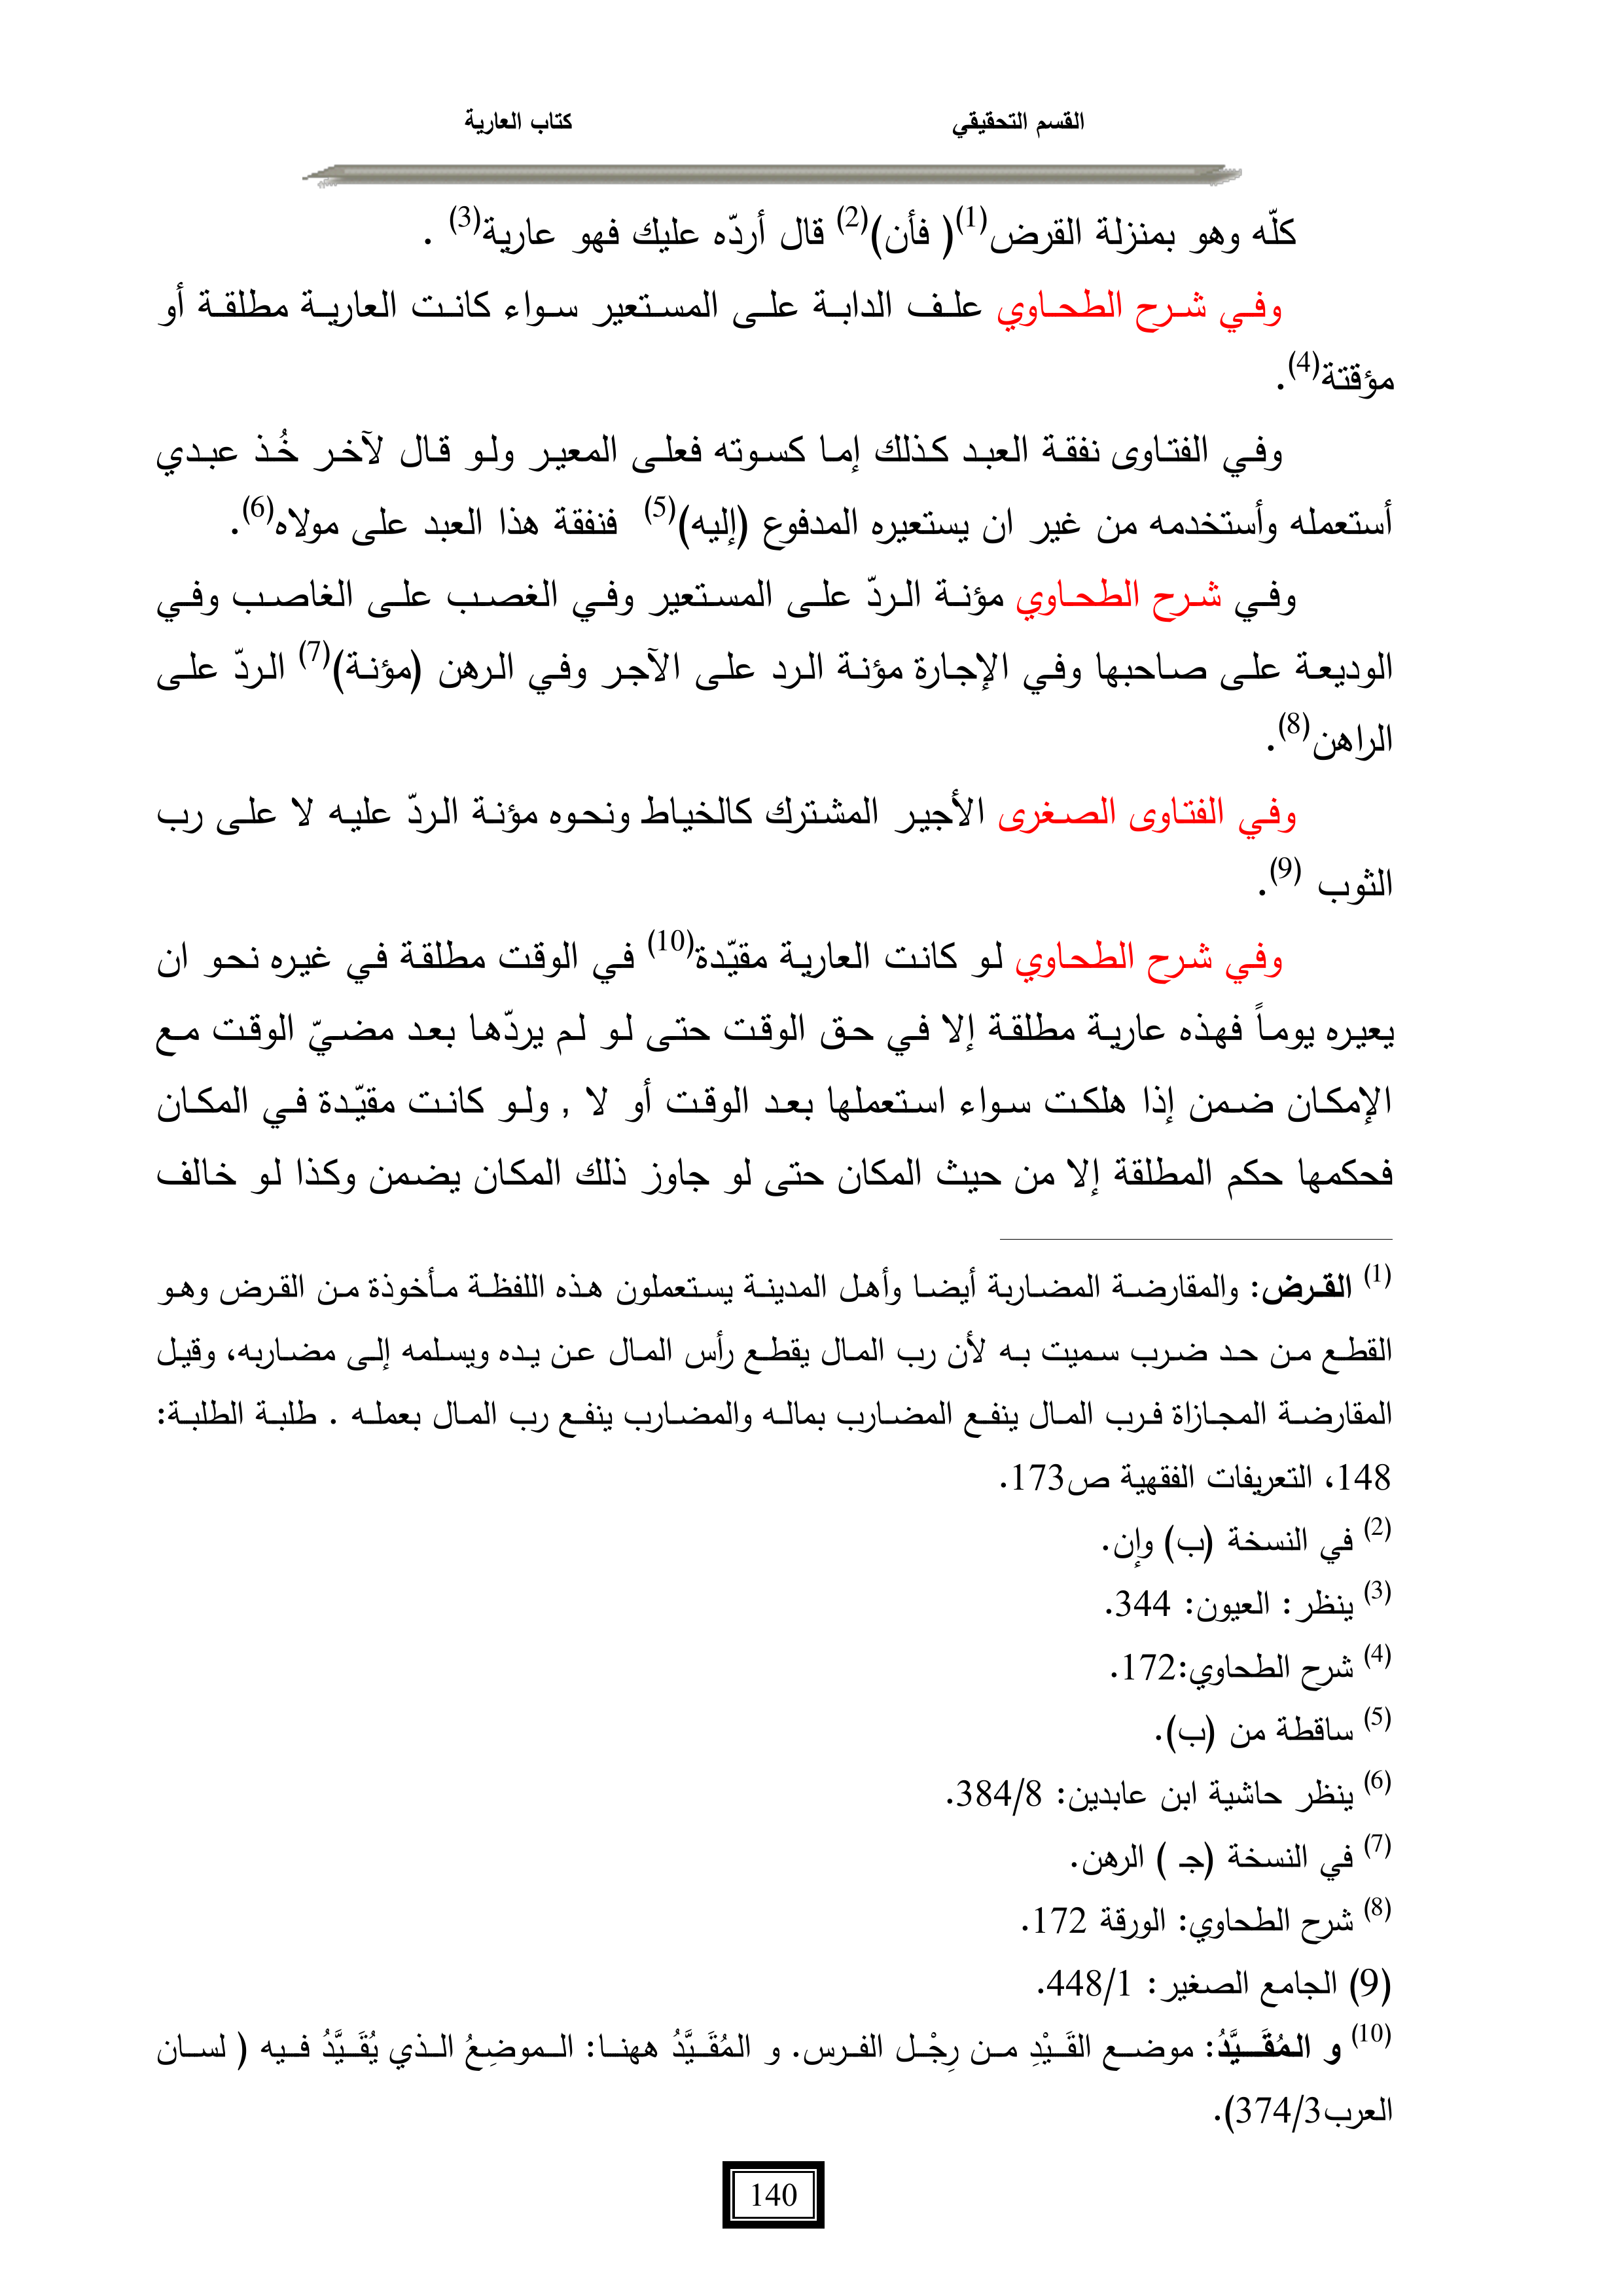 القسم التحقيقي كتاب العارية
كلّه وهو بمنزلة القرض(1)( فأن)(2) قال أردّه عليك فهو عارية(3) .
وفي شرح الطحاوي علف الدابة على المستعير سواء كانت العارية مطلقة أو
مؤقتة(4).
وفي الفتاوى نفقة العبد كذلك إما كسوته فعلى المعير ولو قال لآخر خُذ عبدي
أستعمله وأستخدمه من غير ان يستعيره المدفوع (إليه)(5) فنفقة هذا العبد على مولاه(6).
وفي شرح الطحاوي مؤنة الردّ على المستعير وفي الغصب على الغاصب وفي
الوديعة على صاحبها وفي الإجارة مؤنة الرد على الآجر وفي الرهن (مؤنة)(7) الردّ على
الراهن(8).
وفي الفتاوى الصغرى الأجير المشترك كالخياط ونحوه مؤنة الردّ عليه لا على رب
الثوب (9).
وفي شرح الطحاوي لو كانت العارية مقيّدة(10) في الوقت مطلقة في غيره نحو ان
يعيره يوماً فهذه عارية مطلقة إلا في حق الوقت حتى لو لم يردّها بعد مضيّ الوقت مع
الإمكان ضمن إذا هلكت سواء استعملها بعد الوقت أو لا , ولو كانت مقيّدة في المكان
فحكمها حكم المطلقة إلا من حيث المكان حتى لو جاوز ذلك المكان يضمن وكذا لو خالف
(1) القرض: والمقارضة المضاربة أيضا وأهل المدينة يستعملون هذه اللفظة مأخوذة من القرض وهو
القطع من حد ضرب سميت به لأن رب المال يقطع رأس المال عن يده ويسلمه إلى مضاربه، وقيل
المقارضة المجازاة فرب المال ينفع المضارب بماله والمضارب ينفع رب المال بعمله . طلبة الطلبة:
148، التعريفات الفقهية ص173.
(2) في النسخة (ب) وإن.
(3) ينظر: العيون: 344.
(4) شرح الطحاوي:172.
(5) ساقطة من (ب).
(6) ينظر حاشية ابن عابدين: 384/8.
(7) في النسخة (جـ ) الرهن.
(8) شرح الطحاوي: الورقة 172.
(9) الجامع الصغير: 448/1.
(10) و المُقَيَّدُ: موضع القَيْدِ من رِجْل الفرس. و المُقَيَّدُ ههنا: الموضِعُ الذي يُقَيَّدُ فيه ( لسان
العرب374/3).
140